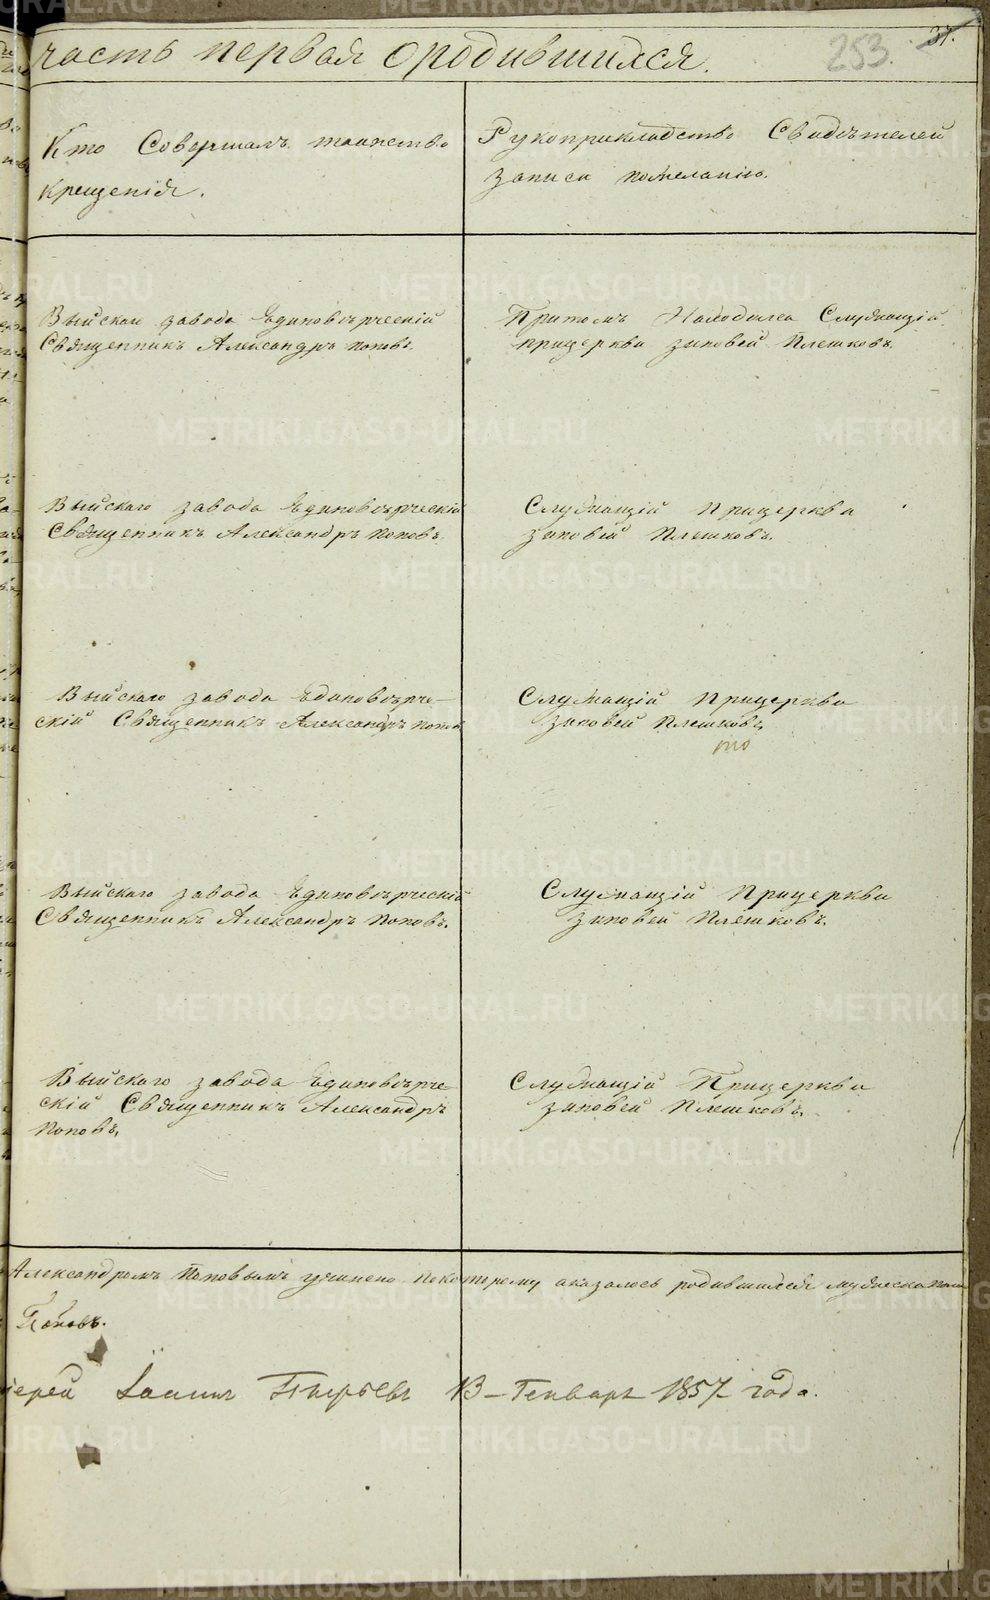 часть первая о родившихся.
253.
37.
Кто Совершалъ таинство
крещенія.
Рукоприкладство Свидѣтелей
записи пожеланію.
Выйскаго завода Единовѣрческій
Священникъ Александръ Поповъ.
Притомъ Находился Служащій
прицеркви зиновей Плешковъ.
Выйскаго завода Единовѣрческій
Священникъ Александръ Поповъ.
Служащій Прицеркви
зиновей Плешковъ.
Выйскаго завода Единовѣрче-
скій Священникъ Александръ Поповъ
Служащій Прицеркви
зиновей Плешковъ,
Выйскаго завода Единовѣрческій
Священникъ Александръ Поповъ.
Служащій Прицеркви
зиновей Плешковъ.
Выйскаго завода Единовѣрче-
скій Священникъ Александръ
Поповъ,
Служащій Прицеркви
зиновей Плешковъ.
Александромъ Поповымъ учинено покоторому оказалось родившихся мужеска пола
Поповъ.
іерей Іоаннъ 13 Генваря 1857 года.
METRIKI.GASO-URAL.RU